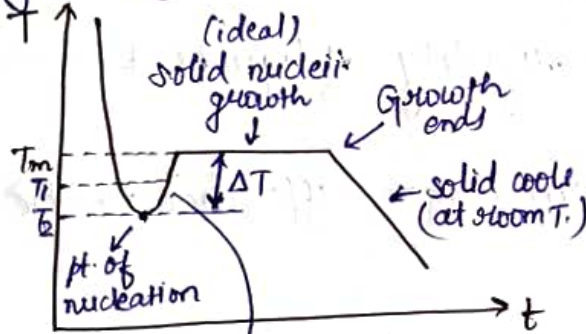 T
(ideal)
solid nucleii
growth
Growth
ends
Tm
T1
T2
ΔT
solid cools
(at room T.)
pt. of
nucleation
t